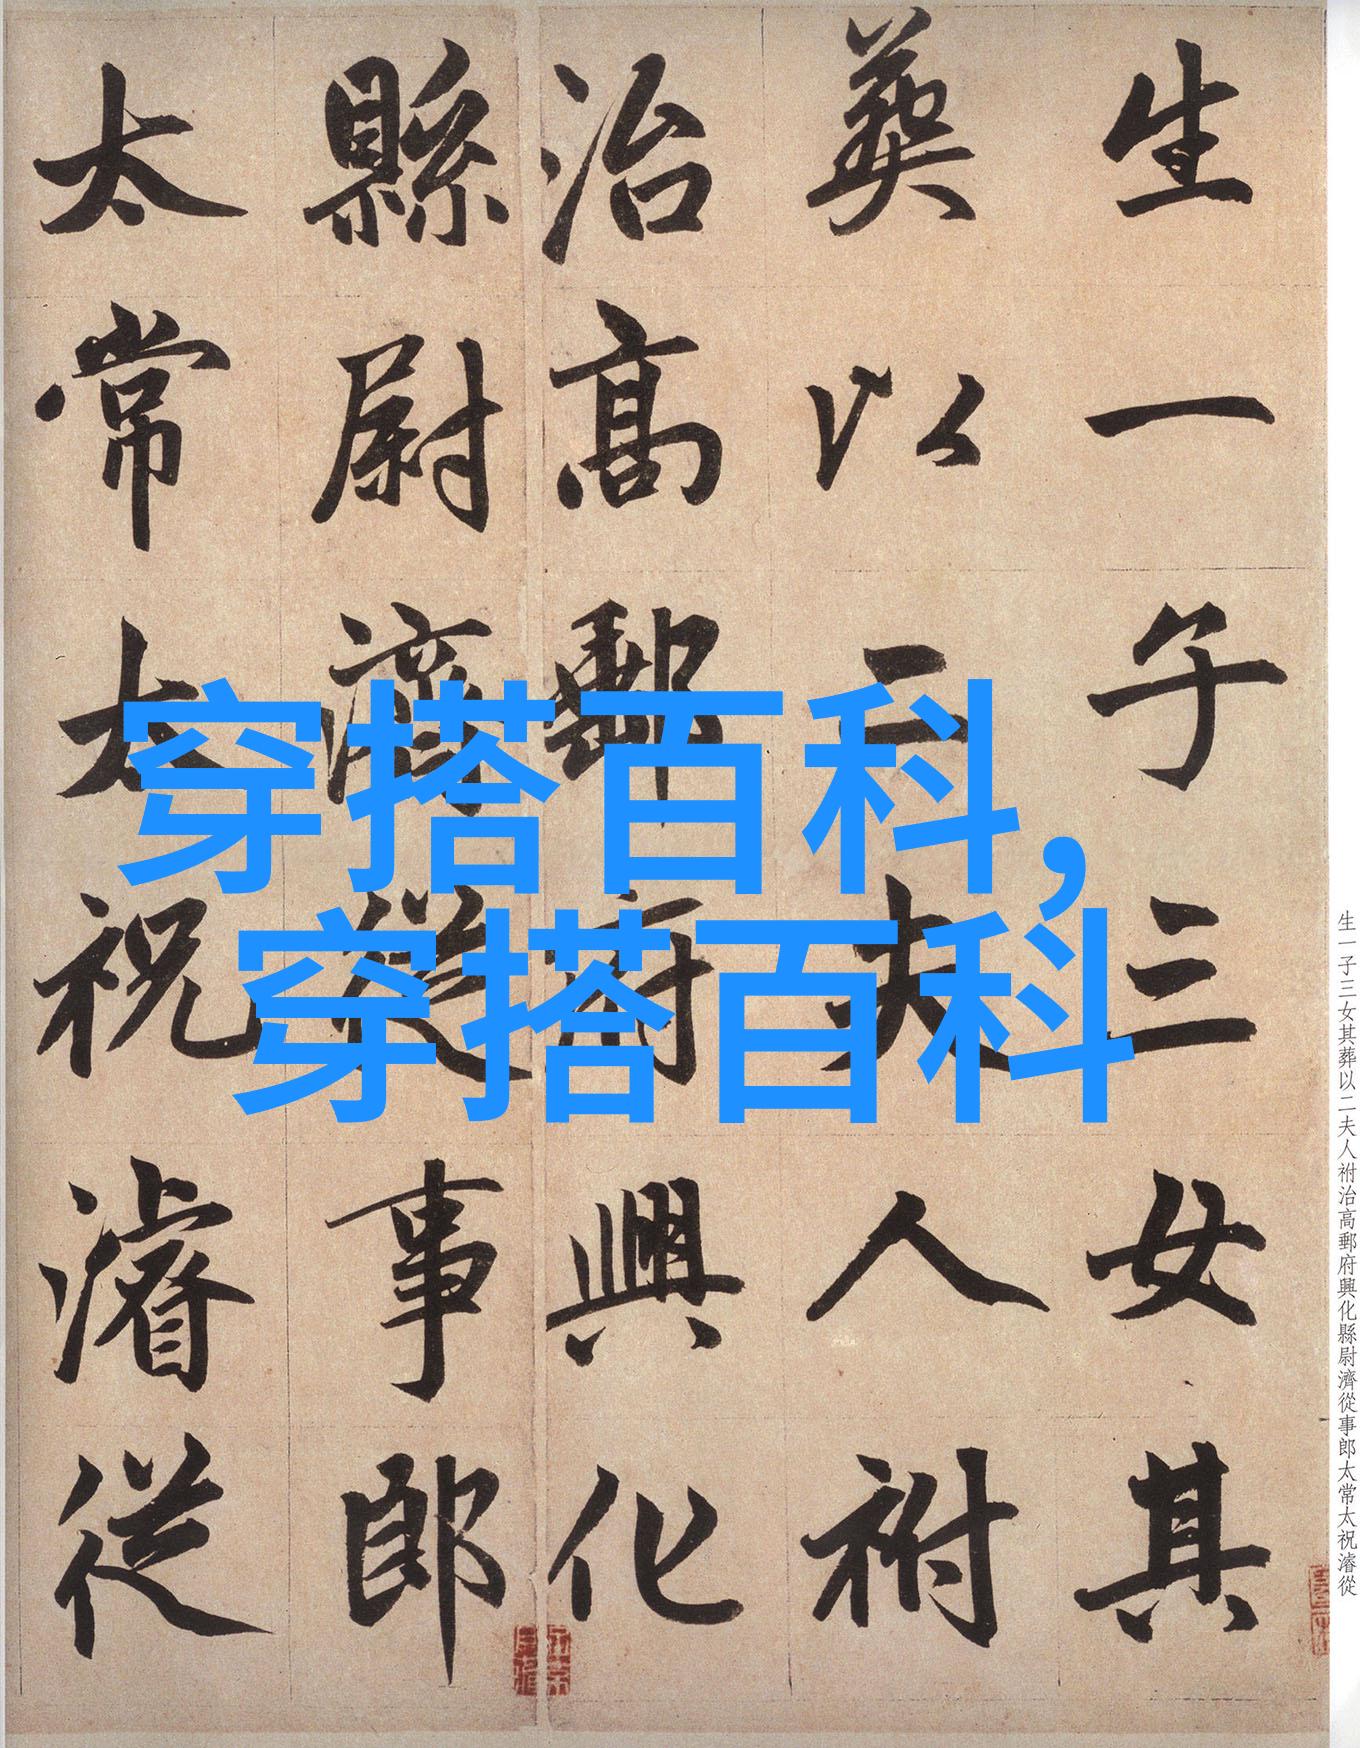 生一子三女其
葬以二夫人祔
治高郵府興化
縣尉濟從事郎
太常太祝濬從
穿搭百科,
穿搭百科
生一子三女其葬以二夫人祔治高郵府興化縣尉濟從事郎太常太祝濬從